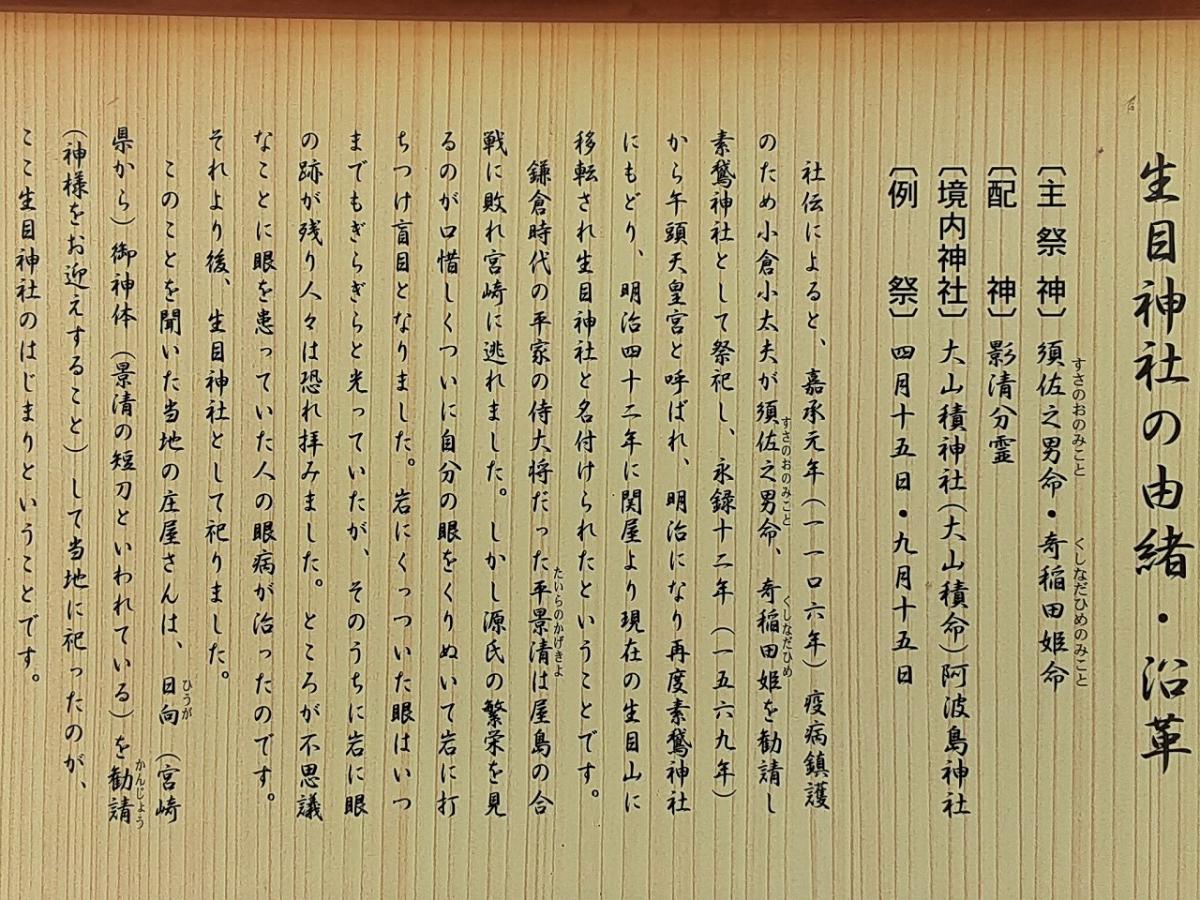 生目神社の由緒・沿革
〔主祭神〕須佐之男命・奇稲田姫命
すさのおのみこと
くしなだひめのみこと
〔配神〕影清分霊
〔境内神社〕大山積神社(大山積命)阿波島神社
〔例祭〕四月十五日・九月十五日
社伝によると、嘉承元年(一一〇六年)疫病鎮護
のため小倉小太夫が須佐之男命、奇稲田姫を勧請し
すさのおのみこと
くしなだひめ
素鵞神社として祭祀し、永録十二年(一五六九年)
から午頭天皇宮と呼ばれ、明治になり再度素鵞神社
にもどり、明治四十二年に関屋より現在の生目山に
移転され生目神社と名付けられたということです。
鎌倉時代の平家の侍大将だった平景清は屋島の合
たいらのかげきよ
戦に敗れ宮崎に逃れました。しかし源氏の繁栄を見
るのが口惜しくついに自分の眼をくりぬいて岩に打
ちつけ盲目となりました。岩にくっついた眼はいつ
までもぎらぎらと光っていたが、そのうちに岩に眼
の跡が残り人々は恐れ拝みました。ところが不思議
なことに眼を患っていた人の眼病が治ったのです。
それより後、生目神社として祀りました。
このことを聞いた当地の庄屋さんは、日向(宮崎
ひうが
県から)御神体(景清の短刀といわれている)を勧請
かんじょう
(神様をお迎えすること)して当地に祀ったのが、
ここ生目神社のはじまりということです。